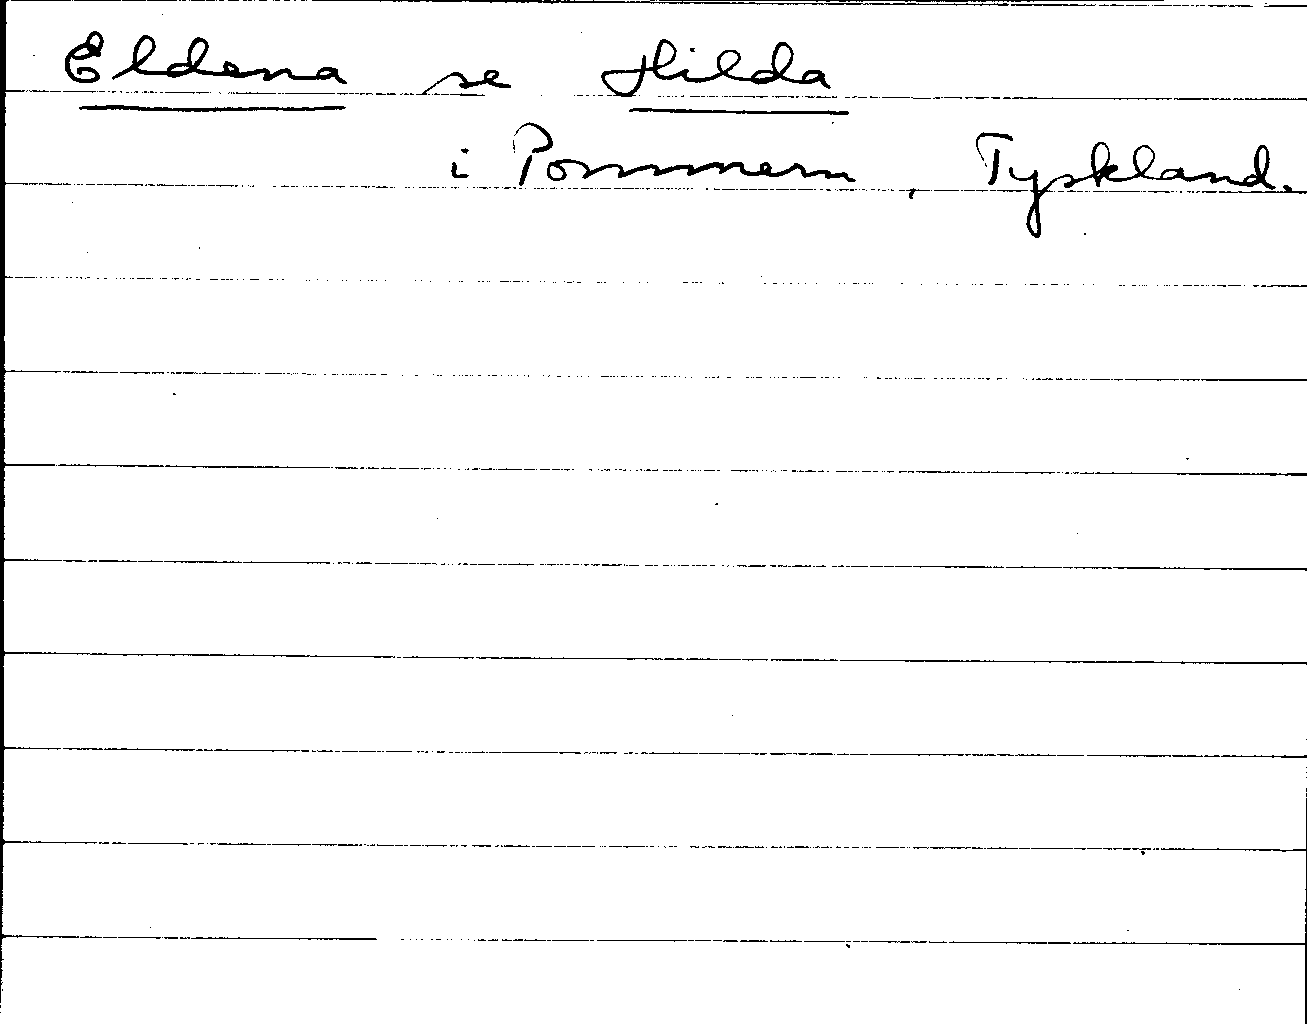 Eldena se Hilda
i Pommern, Tyskland.